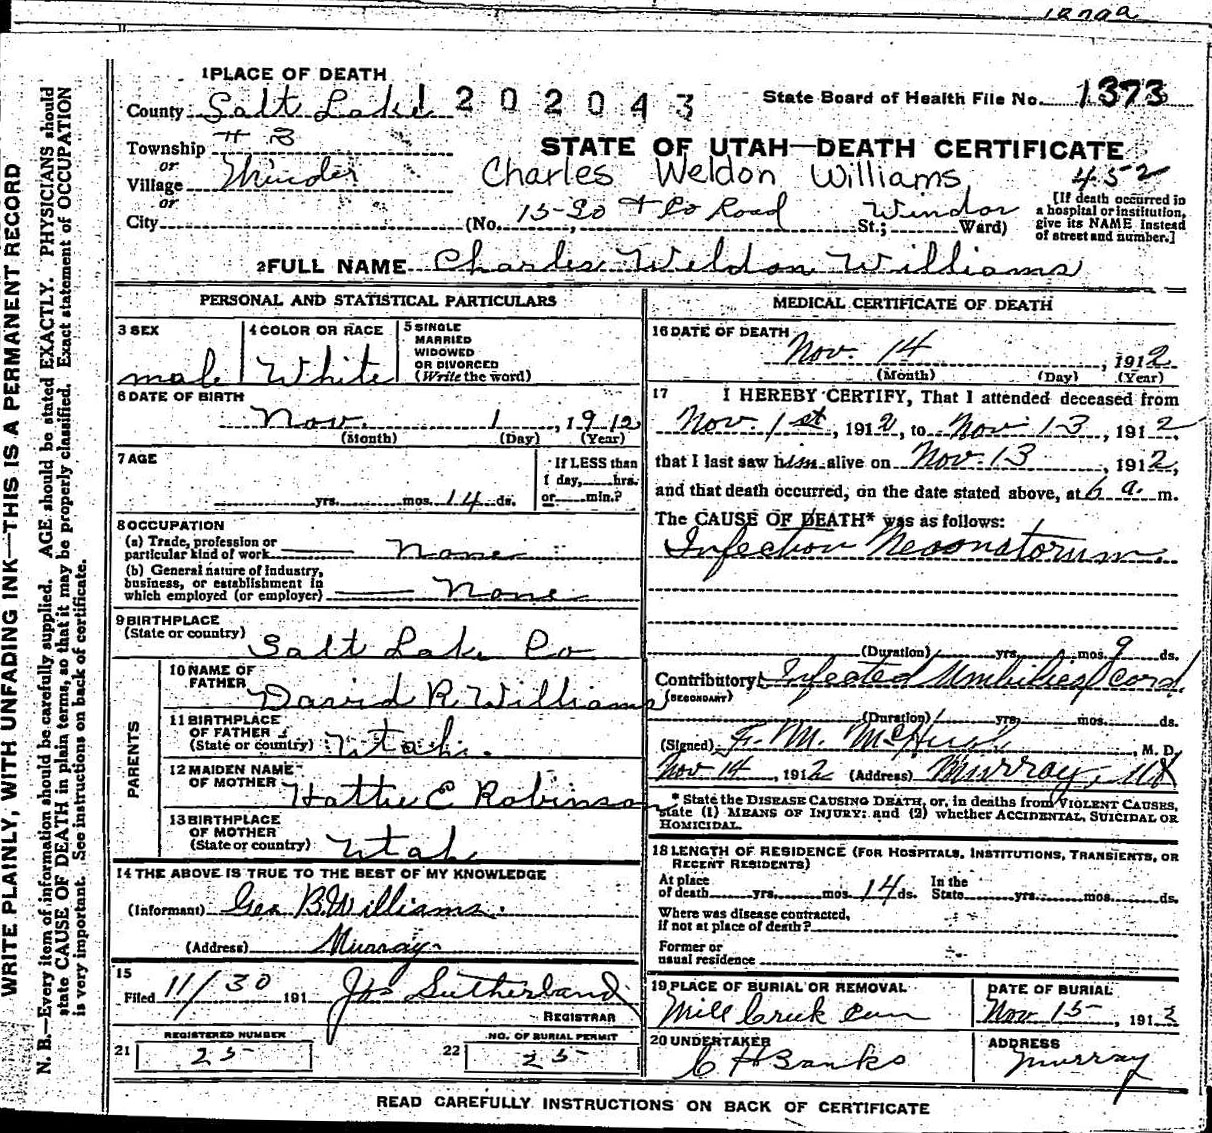 1 PLACE OF DEATH
County Salt Lake 1 2 0 2 0 4 3 State Board of Health File No. 1373
Township # 3
or
Village STATE OF UTAH—DEATH CERTIFICATE
or Charles Weldon Williams 452
City (No. 15-20 & Co Road St.; Windor Ward) [If death occurred in a hospital or institution, give its NAME instead of street and number.]
2 FULL NAME Charles Weldon Williams
PERSONAL AND STATISTICAL PARTICULARS
3 SEX male
4 COLOR OR RACE White
5 SINGLE MARRIED WIDOWED OR DIVORCED (Write the word)
6 DATE OF BIRTH
Nov. 1, 1912
(Month) (Day) (Year)
7 AGE
yrs. mos. 14 ds.
If LESS than 1 day, hrs. or min.?
8 OCCUPATION
(a) Trade, profession or particular kind of work None
(b) General nature of industry, business, or establishment in which employed (or employer) None
9 BIRTHPLACE
(State or country) Salt Lake Co
PARENTS
10 NAME OF FATHER David R. Williams
11 BIRTHPLACE OF FATHER (State or country) Utah.
12 MAIDEN NAME OF MOTHER Hattie E Robinson
13 BIRTHPLACE OF MOTHER (State or country) Utah
14 THE ABOVE IS TRUE TO THE BEST OF MY KNOWLEDGE
(Informant) Geo B. Williams.
(Address) Murray
15
Filed 11/30 191 Jos Sutherland
REGISTRAR
REGISTERED NUMBER
21 25
NO. OF BURIAL PERMIT
22 25
MEDICAL CERTIFICATE OF DEATH
16 DATE OF DEATH
Nov. 14, 1912
(Month) (Day) (Year)
17 I HEREBY CERTIFY, That I attended deceased from
Nov. 1st, 1912, to Nov 13, 1912,
that I last saw him alive on Nov. 13, 1912,
and that death occurred, on the date stated above, at 6 a. m.
The CAUSE OF DEATH* was as follows:
Infection Neonatorum.
(Duration) yrs. mos. 9 ds.
Contributory Infected Umbilical cord.
(SECONDARY)
(Duration) yrs. mos. ds.
(Signed) F. M. McHugh, M. D.
Nov 14, 1912 (Address) Murray, Ut
* State the DISEASE CAUSING DEATH, or, in deaths from VIOLENT CAUSES,
state (1) MEANS OF INJURY; and (2) whether ACCIDENTAL, SUICIDAL OR
HOMICIDAL.
18 LENGTH OF RESIDENCE (FOR HOSPITALS, INSTITUTIONS, TRANSIENTS, OR
RECENT RESIDENTS)
At place of death yrs. mos. 14 ds. In the State yrs. mos. ds.
Where was disease contracted, if not at place of death?
Former or usual residence
19 PLACE OF BURIAL OR REMOVAL
Mill Creek Cem
DATE OF BURIAL
Nov 15, 1912
20 UNDERTAKER
C H Banks
ADDRESS
Murray
READ CAREFULLY INSTRUCTIONS ON BACK OF CERTIFICATE
WRITE PLAINLY, WITH UNFADING INK—THIS IS A PERMANENT RECORD
N. B.—Every item of information should be carefully supplied. AGE should be stated EXACTLY. PHYSICIANS should
state CAUSE OF DEATH in plain terms, so that it may be properly classified. Exact statement of OCCUPATION
is very important. See instructions on back of certificate.